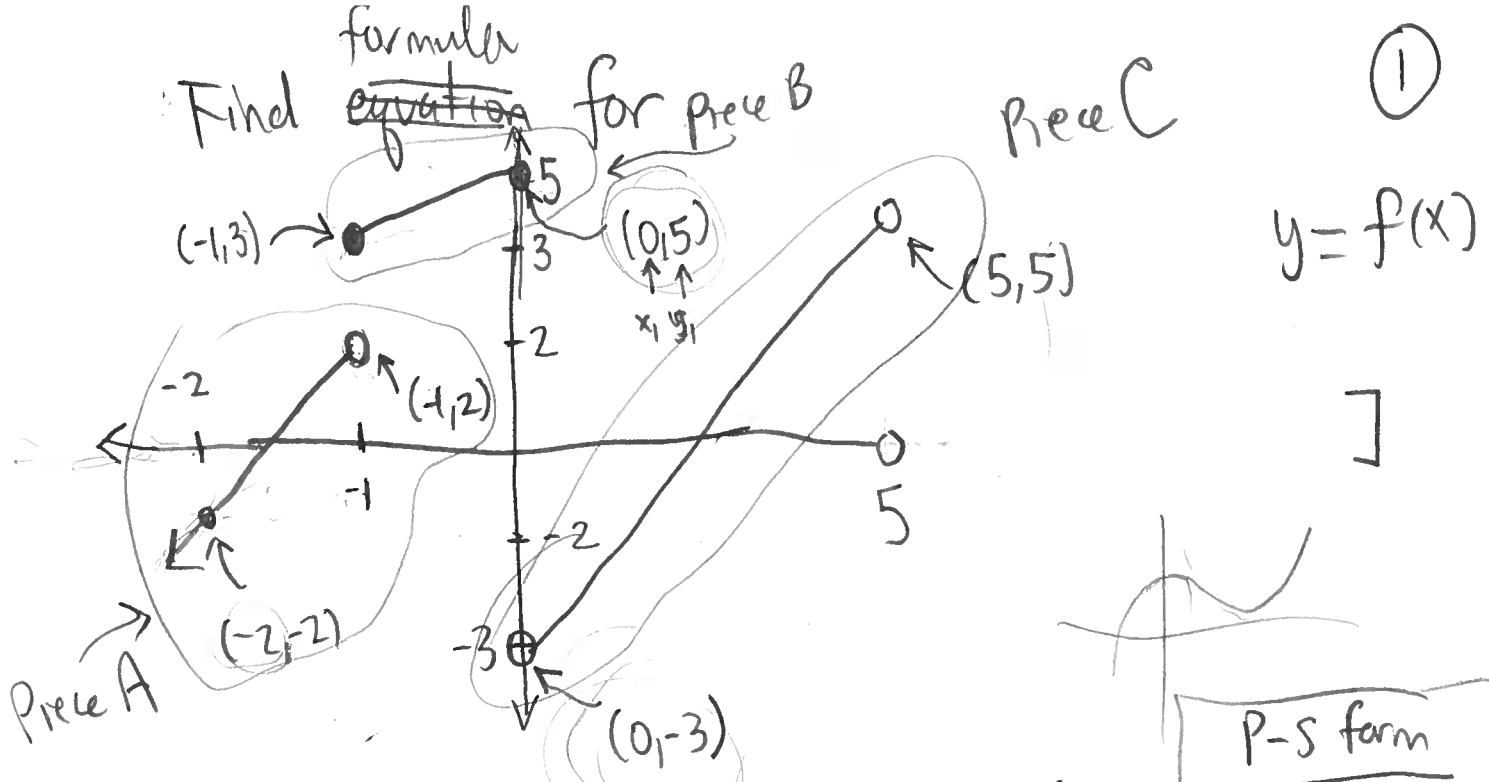 formula
Find equation for piece B
Piece C
1
5
(-1,3)
(0,5)
y = f(x)
3
x₁ y₁
(5,5)
2
-2
(-1,2)
]
-1
5
-2
(-2,-2)
-3
Piece A
(0,-3)
P-S form